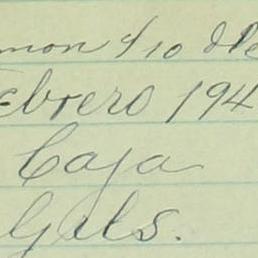 mon c/10 de
Febrero 194
Caja
Gals.